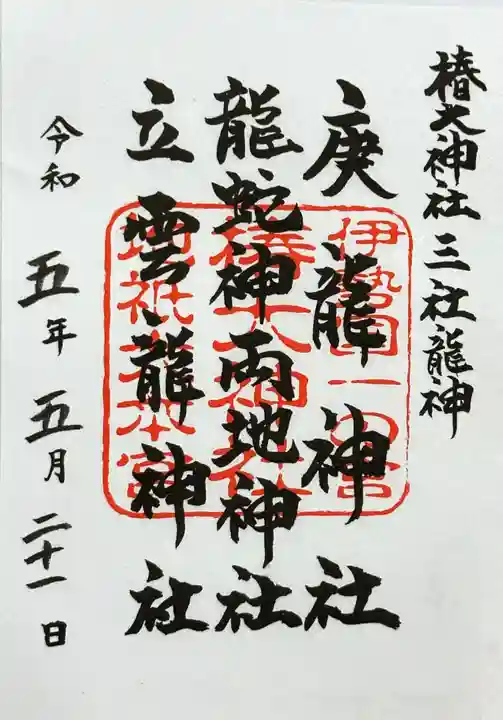 椿大神社 三社龍神
庚龍神社
龍蛇神両地神社
立雲龍神社
令和五年五月二十一日
伊勢国一の宮
椿大神社
地祇大本宮